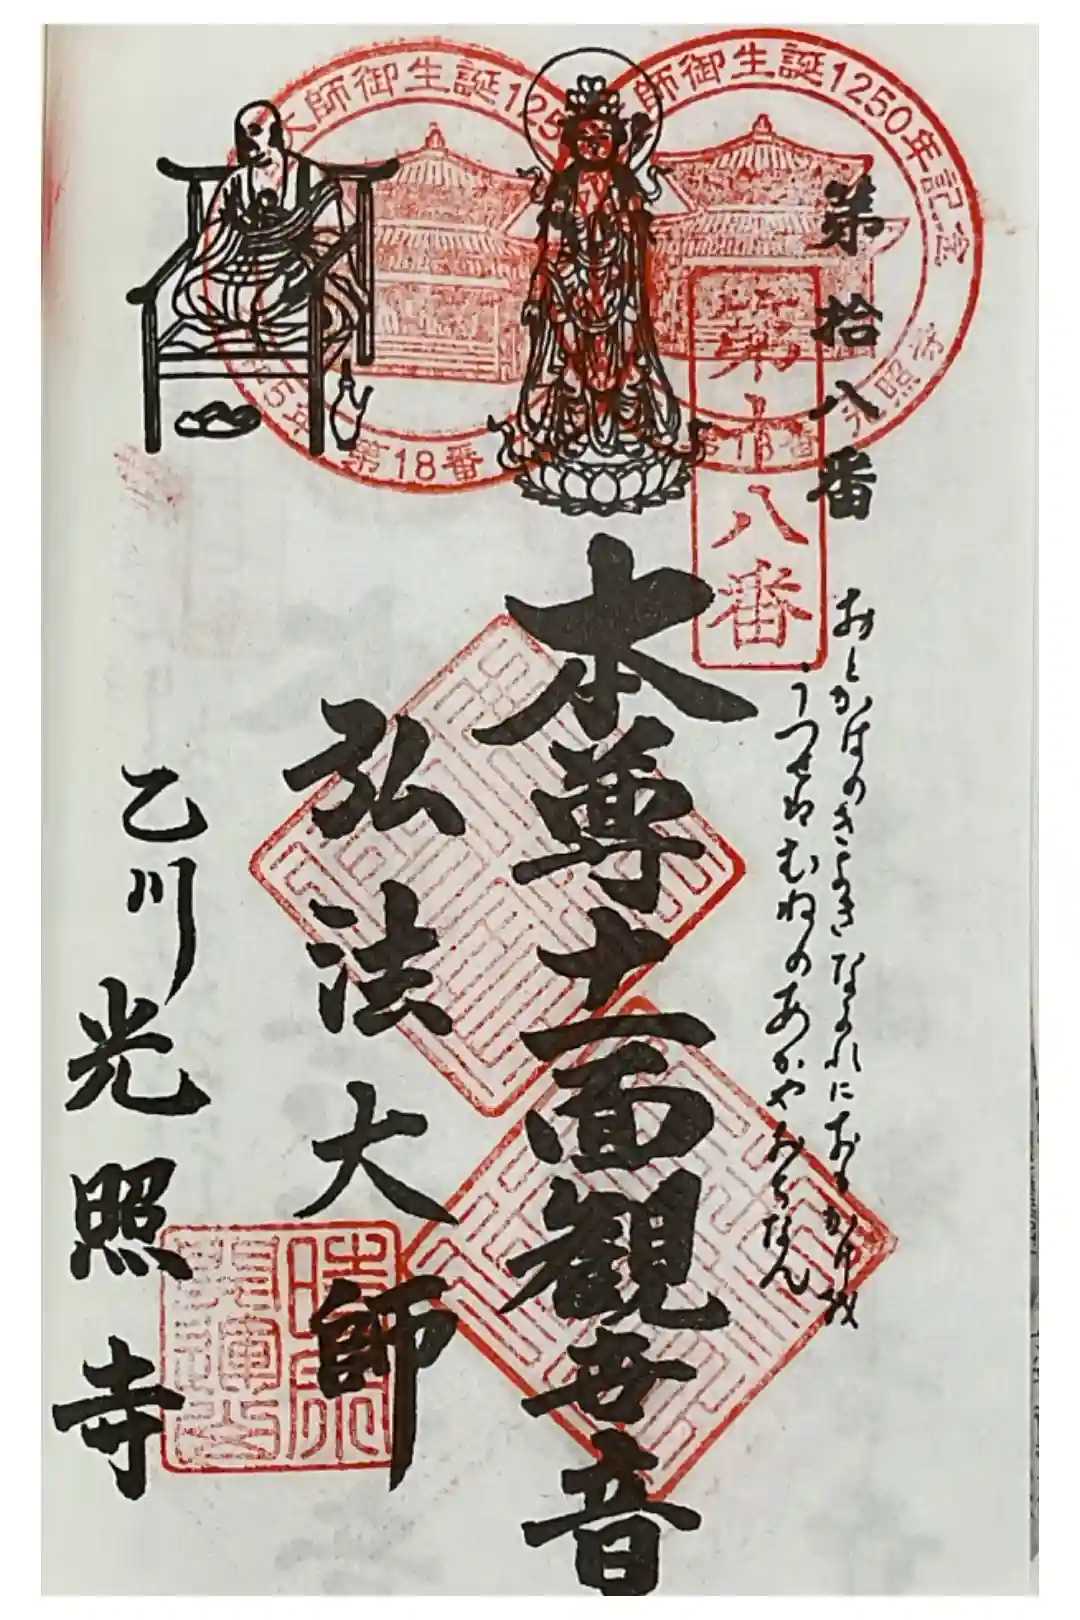 第拾八番
おとかはのきよきながれにおりかけば
うつせばむねのあかやおちなん
本尊十一面観世音
弘法大師
乙川光照寺
第十八番
大師御生誕125
第18番
師御生誕1250年記念
第18番
光照寺